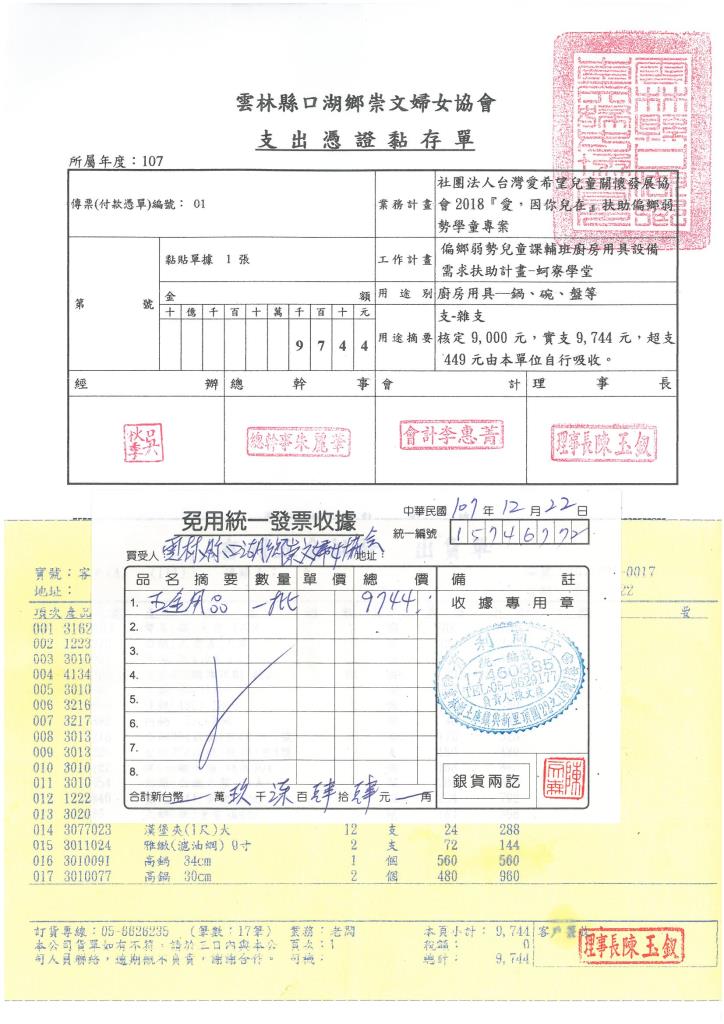 雲林縣口湖鄉崇文婦女協會
支出憑證黏存單
所屬年度：107
傳票(付款憑單)編號： 01
業務計畫
社團法人台灣愛希望兒童關懷發展協
會2018『愛，因你兒在』扶助偏鄉弱
勢學童專案
第 號
黏貼單據 1 張
工作計畫
偏鄉弱勢兒童課輔班廚房用具設備
需求扶助計畫-蚵寮學堂
金 額
用途別
廚房用具—鍋、碗、盤等
十 億 千 百 十 萬 千 百 十 元
9 7 4 4
用途摘要
支-雜支
核定 9,000 元，實支 9,744 元，超支
449 元由本單位自行吸收。
經辦 總幹事 會計 理事長
吳秋季
總幹事朱麗華
會計李惠菁
理事長陳玉釵
免用統一發票收據
中華民國 107 年 12 月 22 日
統一編號 15746772
買受人 雲林縣口湖鄉崇文婦女協會 地址：
品名摘要 數量 單價 總價 備註
1. 五金用品 一批 9744.
收據專用章
2.
3.
4.
5.
6.
7.
8.
利商行
統一編號
17460885
TEL:05-6629177
銀貨兩訖
合計新台幣 萬 玖 千 柒 百 肆 拾 肆 元 角
寶號：客
-0017
地址：
22
項次 產品
001 3162
002 1223
003 3010
004 4134
005 3010
006 3216
007 3217
008 3013
009 3013
010 3010
011 3010
012 1222
013 3020
014 3077023 漢堡夾(1尺)大 12 支 24 288
015 3011024 雅緻(濾油網) 9寸 2 支 72 144
016 3010091 高鍋 34cm 1 個 560 560
017 3010077 高鍋 30cm 2 個 480 960
訂貨專線：05-6626235 (筆數：17筆) 業務：老闆 本頁小計： 9,744 客戶簽
本公司貨單如有不符，請於三日內與本公 頁次：1 稅額： 0
司人員聯絡，逾期概不負責，謝謝合作。 司機： 總計： 9,744
理事長陳玉釵